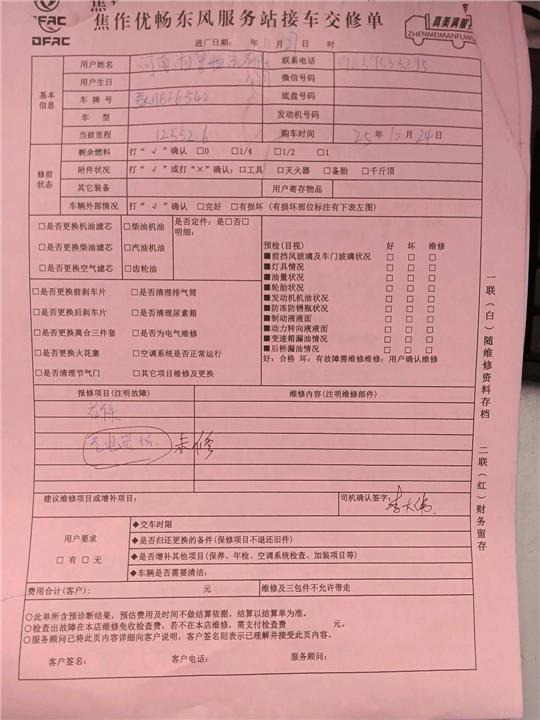 DFAC
焦作优畅东风服务站接车交修单
真美满服
ZHENMEIMANFUWU
进厂日期: 年 11月27日 时
基本信息
用户姓名
联系电话
用户生日
微信号码
车牌号
底盘号码
车 型
发动机号码
当前里程 12552.6 购车时间 25年10月24日
修前状态
剩余燃料 打“√”确认 □0 □1/4 □1/2 □1
附件状况 打“√”或打“×”确认:□工具 □灭火器 □备胎 □千斤顶
其它装备 用户寄存物品
车辆外部情况 打“√”确认 □完好 □有损坏 (有损坏部位标注有下表左图)
□是否更换机油滤芯 □柴油机油 是否定件: 是□否□
明细:
□是否更换柴油滤芯 □汽油机油
□是否更换空气滤芯 □齿轮油
□是否更换前刹车片 □是否清理排气筒
□是否更换后刹车片 □是否清理尿素箱
□是否更换离合三件套 □是否为电气维修
□是否更换火花塞 □空调系统是否正常运行
□是否清理节气门 □其它项目维修及更换
预检(目视) 好 坏 维修
■前挡风玻璃及车门玻璃状况 □ □ □
■灯具情况 □ □ □
■油量状况 □ □ □
■轮胎状况 □ □ □
■发动机机油状况 □ □ □
■防冻防锈瓶状况 □ □ □
■制动液液面 □ □ □
■动力转向液液面 □ □ □
■变速箱漏油情况 □ □ □
■后桥漏油情况 □ □ □
好: 合格 坏: 有故障需维修维修: 用户确认维修
报修项目(注明故障) 维修内容(注明维修部件)
未修
建议维修项目或增补项目: 司机确认签字:
用户要求
□有 □无
◆交车时限
◆是否归还更换的备件(保修项目不退还旧件)
◆是否增补其他项目(保养、年检、空调系统检查、加装项目等)
◆车辆是否需要清洁:
费用合计(客户): 元 维修及三包件不允许带走
○此单所含预诊断结果, 预估费用及时间不做结算依据, 结算以结算单为准。
○检查出故障在本店维修免收检查费, 若不在本店维修, 需支付检查费 元。
○服务顾问已将此页内容详细向客户说明, 客户签名则表示已理解并接受此页内容。
客户签名: 客户电话: 服务顾问:
一联(白)随维修资料存档
二联(红)财务留存